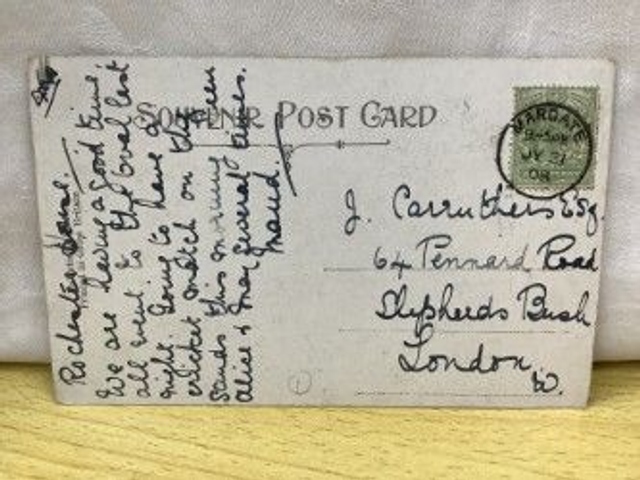 SOUVENIR POST CARD
MARGATE
JY 31
08
J. Carruthers Esq.
64 Pennard Road
Shepherds Bush
London
W.
Rochester House.
We are having a good time.
all went to the Oval last
night. Going to have a
cricket match on the
Sands this morning
Alice & May several times.
Maud.